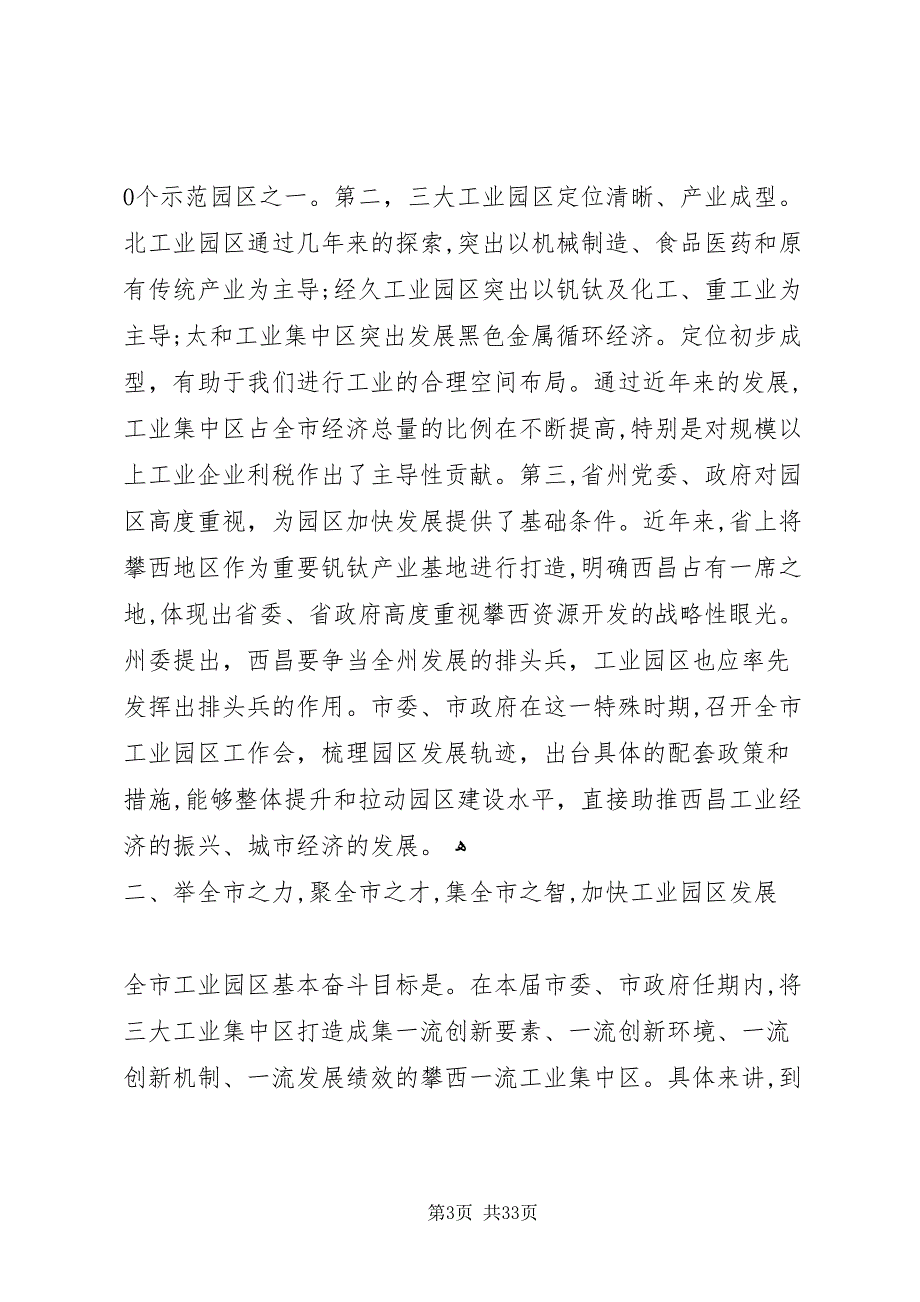 0个示范园区之一。第二，三大工业园区定位清晰、产业成型。
北工业园区通过几年来的探索,突出以机械制造、食品医药和原
有传统产业为主导;经久工业园区突出以钒钛及化工、重工业为
主导;太和工业集中区突出发展黑色金属循环经济。定位初步成
型，有助于我们进行工业的合理空间布局。通过近年来的发展,
工业集中区占全市经济总量的比例在不断提高,特别是对规模以
上工业企业利税作出了主导性贡献。第三,省州党委、政府对园
区高度重视，为园区加快发展提供了基础条件。近年来,省上将
攀西地区作为重要钒钛产业基地进行打造,明确西昌占有一席之
地,体现出省委、省政府高度重视攀西资源开发的战略性眼光。
州委提出，西昌要争当全州发展的排头兵，工业园区也应率先
发挥出排头兵的作用。市委、市政府在这一特殊时期,召开全市
工业园区工作会，梳理园区发展轨迹，出台具体的配套政策和
措施,能够整体提升和拉动园区建设水平，直接助推西昌工业经
济的振兴、城市经济的发展。 ﻫ
二、举全市之力,聚全市之才,集全市之智,加快工业园区发展
全市工业园区基本奋斗目标是。在本届市委、市政府任期内,将
三大工业集中区打造成集一流创新要素、一流创新环境、一流
创新机制、一流发展绩效的攀西一流工业集中区。具体来讲,到
第3页 共33页